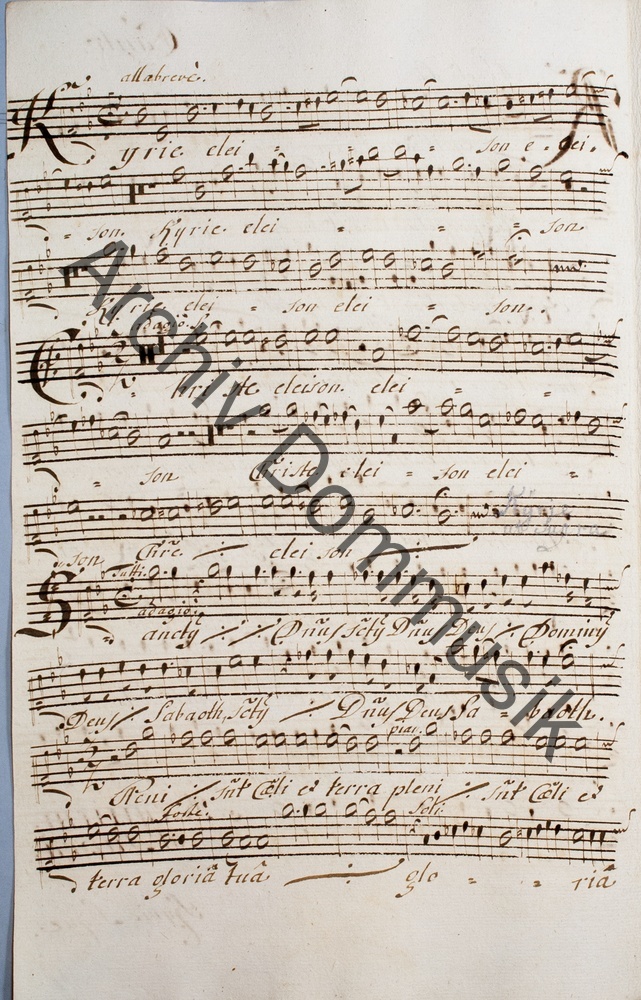 allabreve.
Kyrie elei = = son e - lei.
= son. Kyrie elei = = = son
Kyrie elei = son elei = son.
adagio.
Christe eleison. elei = =
= son Christe elei = son elei =
son Chre ·/· elei son ·/·
Tutti.
adagio
Sancty ·/· ·/· Dnus Scty Dnus Deus ·/· Dominy
Deus ·/· Sabaoth, Scty ·/· Dnus Deus Sa = baoth.
pia:
Pleni ·/· Snt Cæli et terra pleni ·/· Snt Cæli et
Forte. Solo
terra gloriâ tuâ ·/· glo = = riâ
Archiv Dommusik